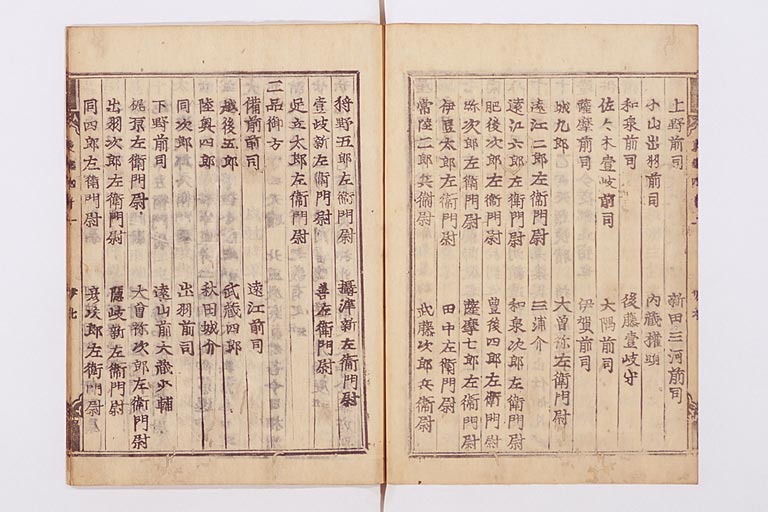 上野前司 新田三河前司
小山出羽前司 内蔵権頭
和泉前司 後藤壹岐守
佐々木壹岐前司 大隅前司
薩摩前司 伊賀前司
城九郎 大曽祢左衛門尉
遠江二郎左衛門尉 三浦介
遠江六郎左衛門尉 和泉次郎左衛門尉
肥後次郎左衛門尉 豊後四郎左衛門尉
弥次郎左衛門尉 薩摩七郎左衛門尉
伊豆太郎左衛門尉 田中左衛門尉
常陸二郎兵衛尉 武藤次郎兵衛尉
狩野五郎左衛門尉 攝津新左衛門尉
壹岐新左衛門尉 善左衛門尉
足立太郎左衛門尉
二品御方
備前前司 遠江前司
越後五郎 武蔵四郎
陸奥四郎 秋田城介
同次郎 出羽前司
下野前司 遠山前大蔵少輔
左衛門尉 大曽祢次郎左衛門尉
出羽次郎左衛門尉 隠岐新左衛門尉
同四郎左衛門尉 次郎左衛門尉